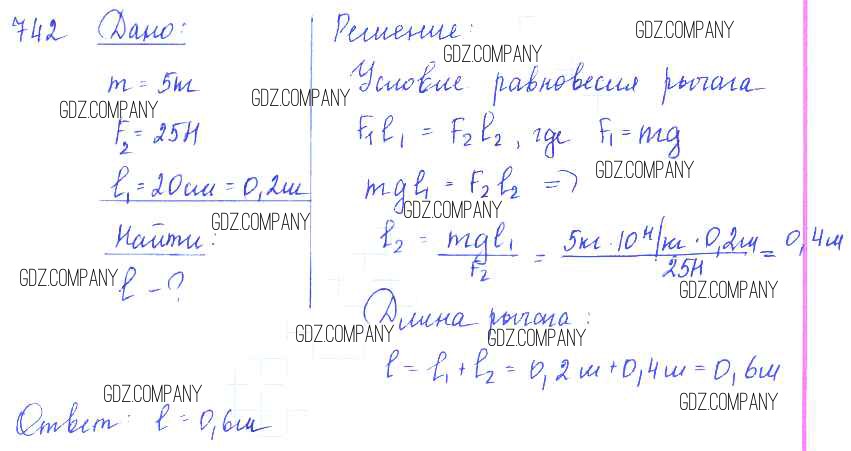 742 Дано:
m = 5т
F₂ = 25Н
l₁ = 20см = 0,2м
Найти:
l - ?
Решение:
Условие равновесия рычага
F₁l₁ = F₂l₂, где F₁ = mg
mgl₁ = F₂l₂ =>
l₂ = mgl₁/F₂ = 5кг · 10Н/кг · 0,2м/25Н = 0,4м
Длина рычага:
l = l₁ + l₂ = 0,2м + 0,4м = 0,6м
Ответ: l = 0,6м
GDZ.COMPANY
GDZ.COMPANY
GDZ.COMPANY
GDZ.COMPANY
GDZ.COMPANY
GDZ.COMPANY
GDZ.COMPANY
GDZ.COMPANY
GDZ.COMPANY
GDZ.COMPANY
GDZ.COMPANY
GDZ.COMPANY
GDZ.COMPANY